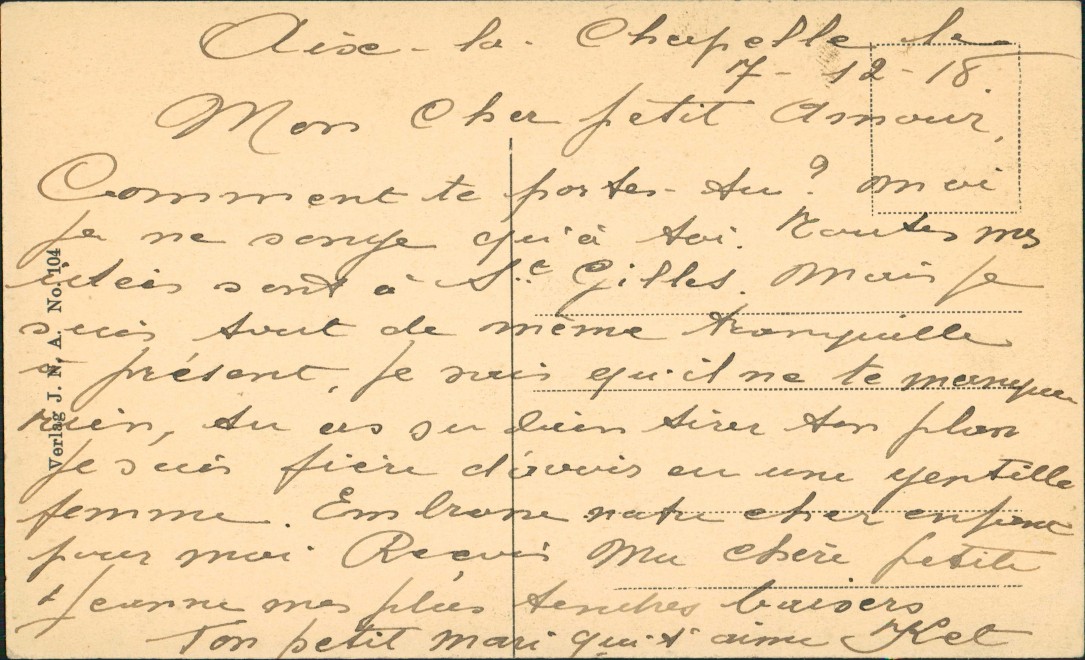 Aix-la-Chapelle le
7-12-18.
Mon cher petit Amour,
Comment te portes-tu? moi
je ne songe qu'à toi. Toutes mes
idéés sont à St. Gilles. Mais je
suis tout de même tranquille
à présent, je sais qu'il ne te manque
rien, tu as su bien tirer ton plan
Je suis fière d'avoir eu une gentille
femme. Embrasse notre cher enfant
pour moi. Recevis Ma chère petite
Jeanne mes plus tendres baisers
Ton petit mari qui t'aime
Verlag J. N. A. No. 104